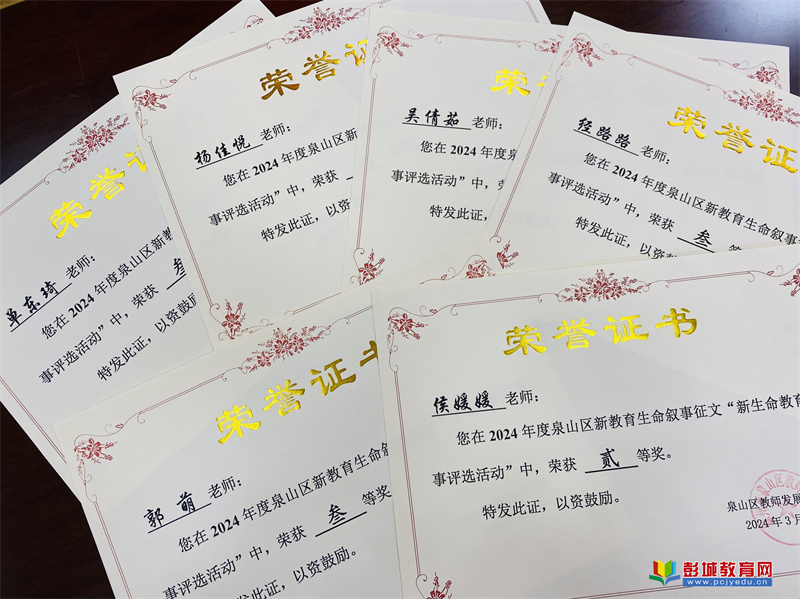 荣誉证
杨佳悦 老师：
您在 2024 年度泉山区新
事评选活动”中，荣获
特发此证，以资
荣
吴倩茹 老师：
您在 2024 年度泉
事评选活动”中，荣
特发此证，
荣誉证
经路路 老师：
您在 2024 年度泉山区新教育生命叙事
事评选活动”中，荣获 叁 等
特发此证，以资
荣誉
单东琦 老师：
您在 2024 年度泉山区新教
事评选活动”中，荣获 叁
特发此证，以资鼓励
荣誉证书
郭萌 老师：
您在 2024 年度泉山区新教育生命叙
事评选活动”中，荣获 叁 等奖
特发此证，以资鼓励。
荣誉证书
侯媛媛 老师：
您在 2024 年度泉山区新教育生命叙事征文“新生命教育
事评选活动”中，荣获 贰 等奖。
特发此证，以资鼓励。
泉山区教师发展
2024 年 3 月
彭城教育网
www.pcjyedu.cn